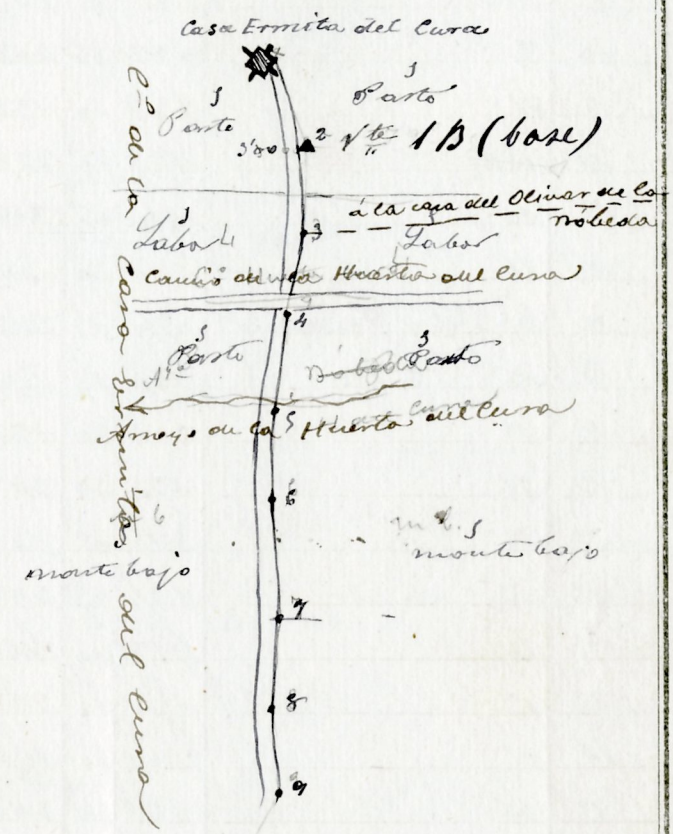 Casa Ermita del Cura
Pasto
Pasto
2
1 B (base)
3
à la casa del Olivar de la
Nóbeda
Labor
Labor
Camino de la Huerta del Cura
4
Pasto
Pasto
5
Arroyo de la Huerta del Cura
6
monte bajo
monte bajo
7
8
9
de la Casa Ermita del Cura